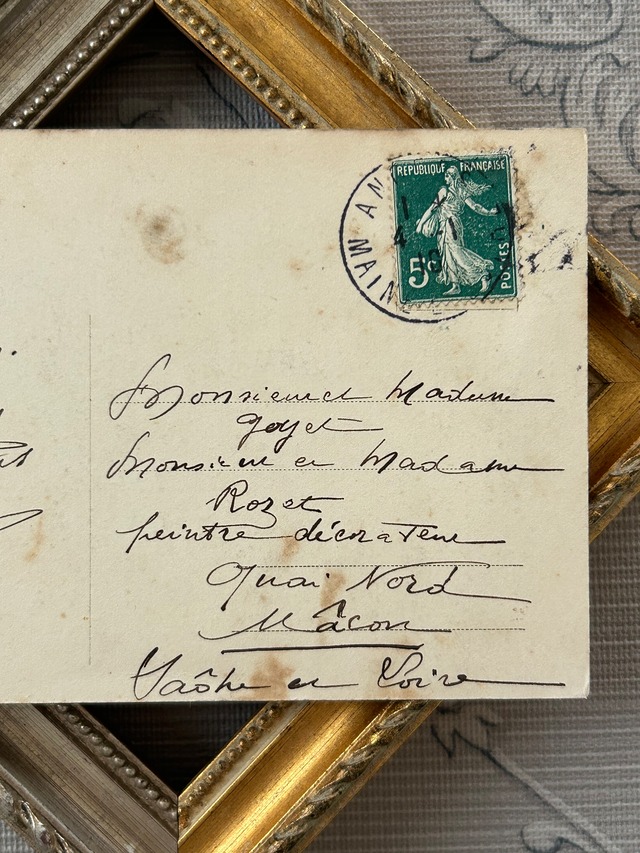 RÉPUBLIQUE FRANÇAISE
5c
POSTES
AN
MAIN
4
Monsieur et Madame
Goyet
Monsieur et Madame
Rozet
peintre décorateur
Quai Nord
Mâcon
Saône et Loire